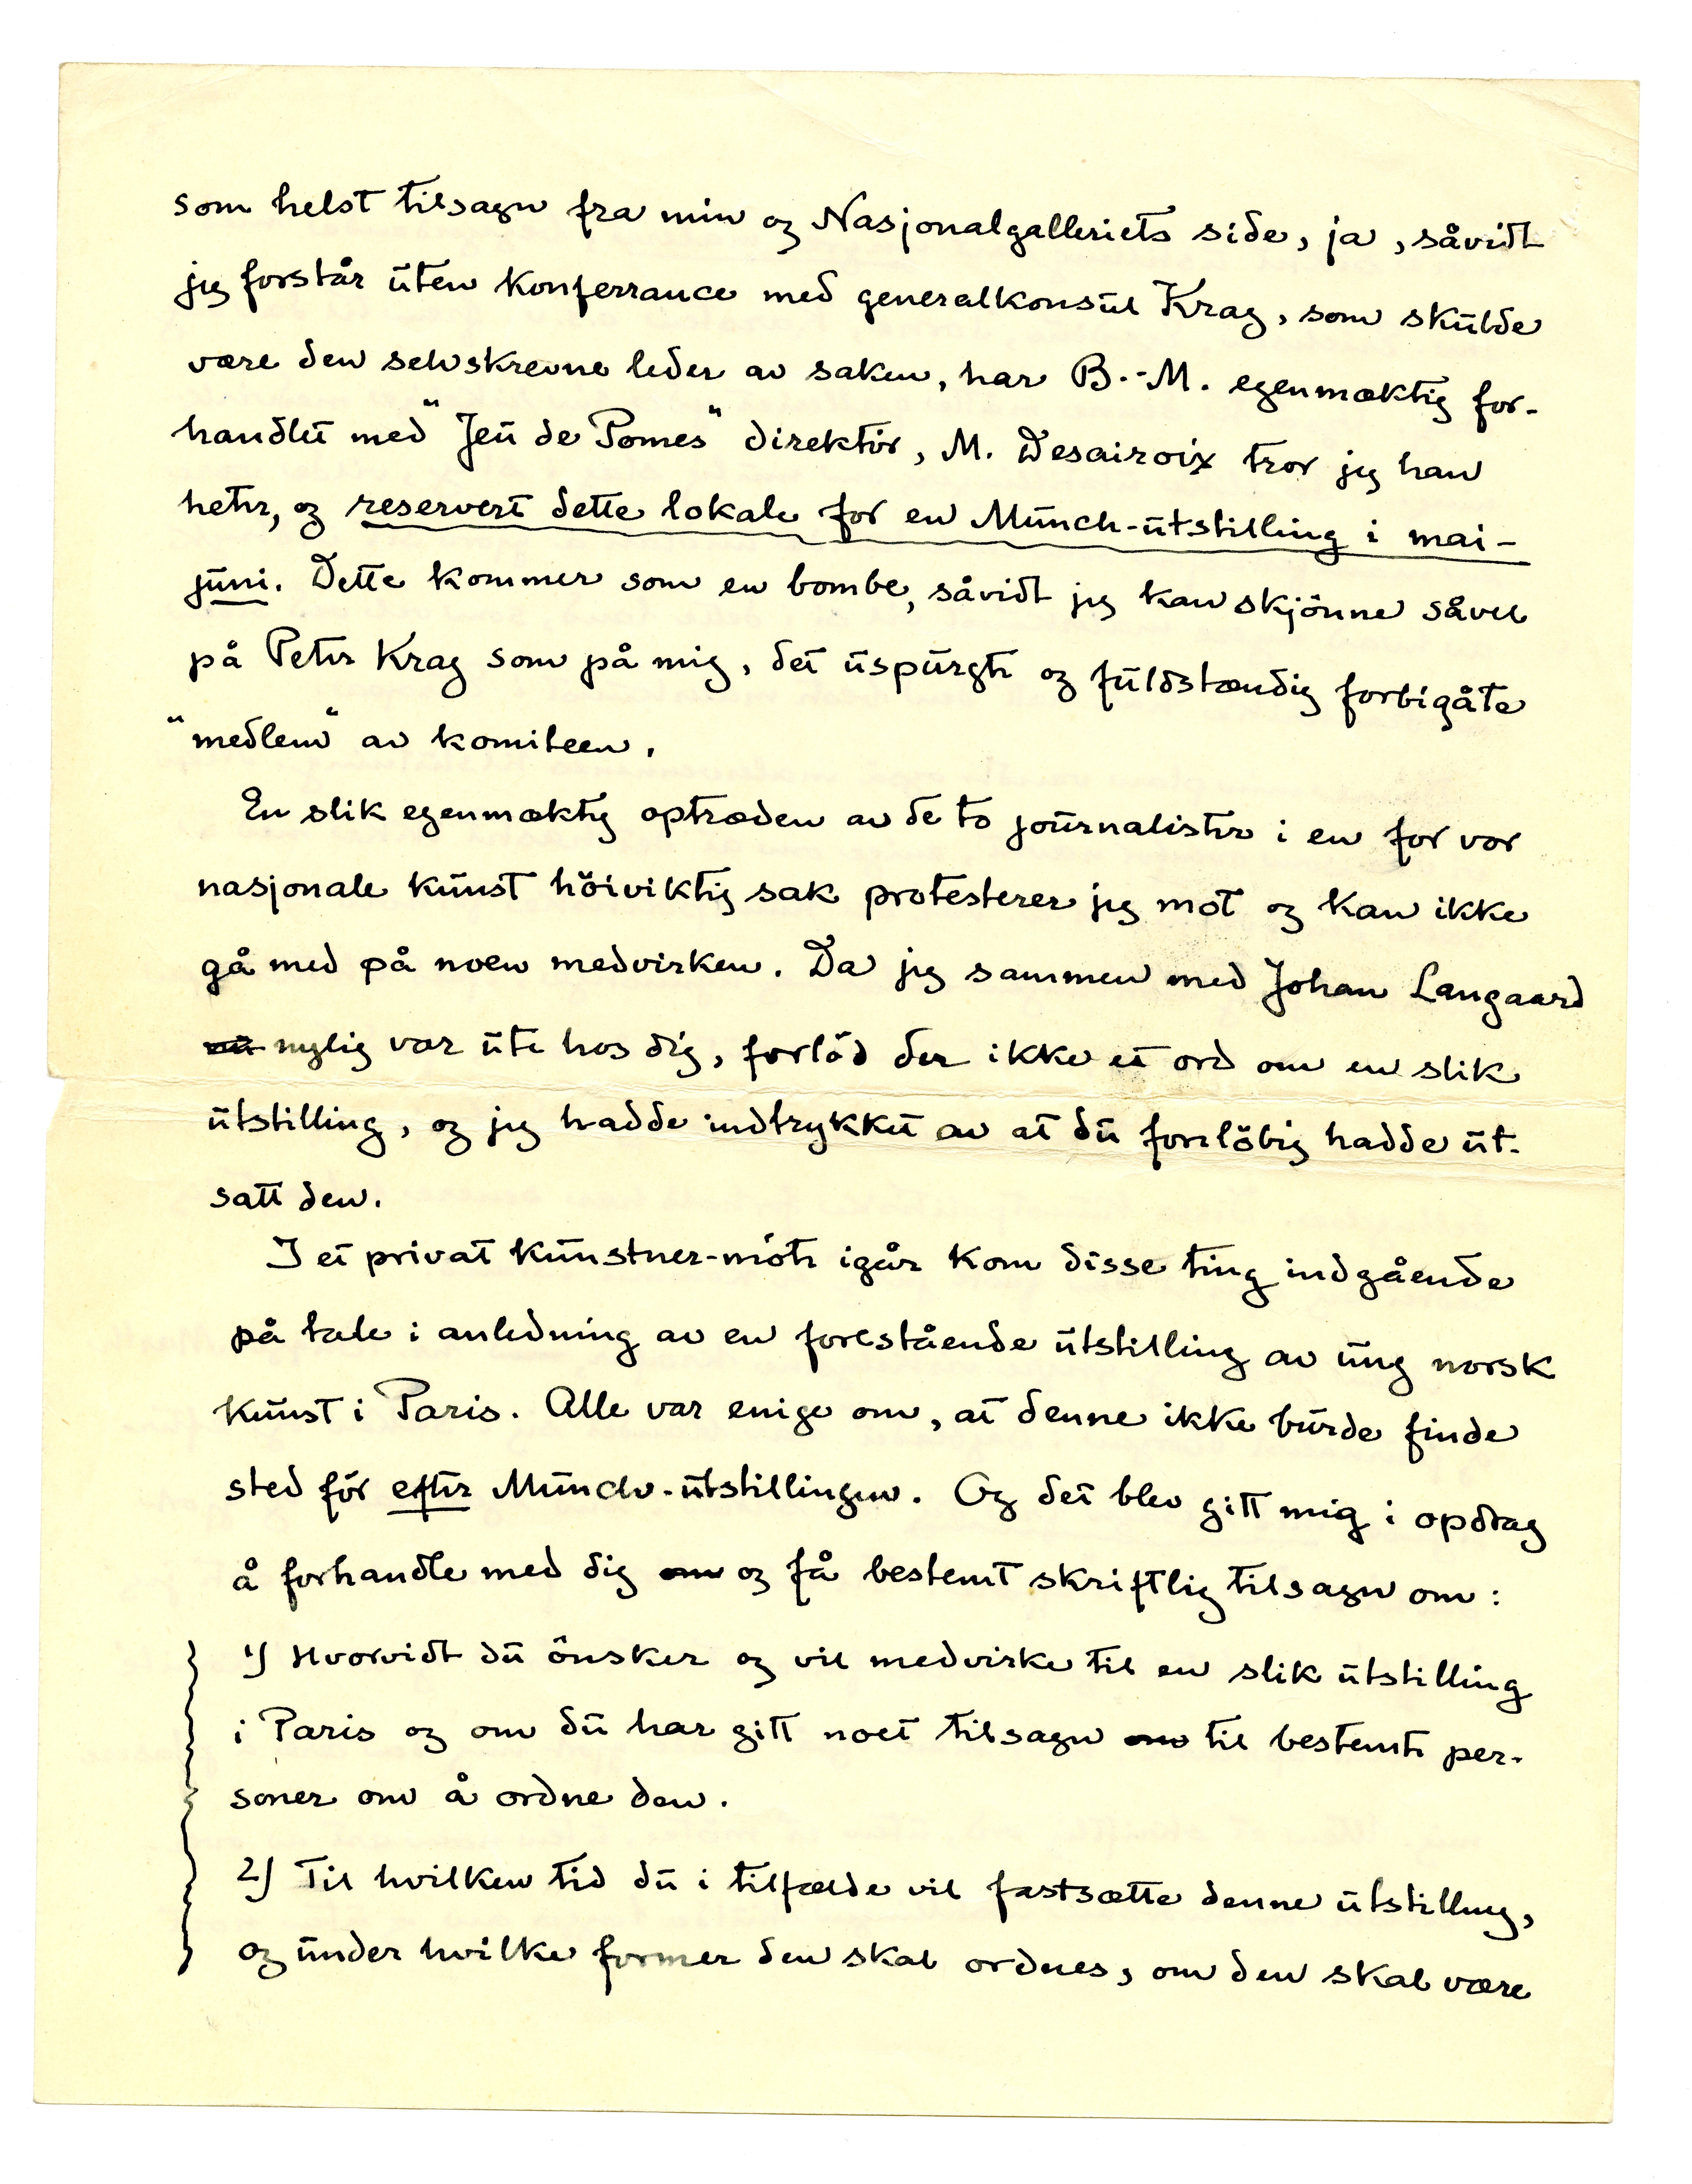 som helst tilsagn fra min og Nasjonalgalleriets side, ja, såvidt
jeg forstår uten konferrance med generalkonsul Krag, som skulde
være den selvskrevne leder av saken, har B.-M. egenmæktig for-
handlet med "Jeu de Pomes" direktör, M. Desairoix tror jeg han
heter, og reservert dette lokale for en Munch-utstilling i mai-
juni. Dette kommer som en bombe, såvidt jeg kan skjönne såvel
på Peter Krag som på mig, det uspurgte og fuldstændig forbigåte
"medlem" av komiteen.
En slik egenmæktig optræden av de to journalister i en for vor
nasjonale kunst höiviktig sak protesterer jeg mot og kan ikke
gå med på noen medvirken. Da jeg sammen med Johan Langaard
nu nylig var ute hos dig, forlöd der ikke et ord om en slik
utstilling, og jeg hadde indtrykket av at du foreløbig hadde ut-
satt den.
I et privat kunstner-möte igår kom disse ting indgående
på tale i anledning av en forestående utstilling av ung norsk
kunst i Paris. Alle var enige om, at denne ikke burde finde
sted för efter Munch-utstillingen. Og det blev gitt mig i opdrag
å forhandle med dig om og få bestemt skriftlig tilsagn om:
1) Hvorvidt du önsker og vil medvirke til en slik utstilling
i Paris og om du har gitt noet tilsagn om til bestemte per-
soner om å ordne den.
2) Til hvilken tid du i tilfælde vil fastsætte denne utstilling,
og under hvilke former den skal ordnes, om den skal være